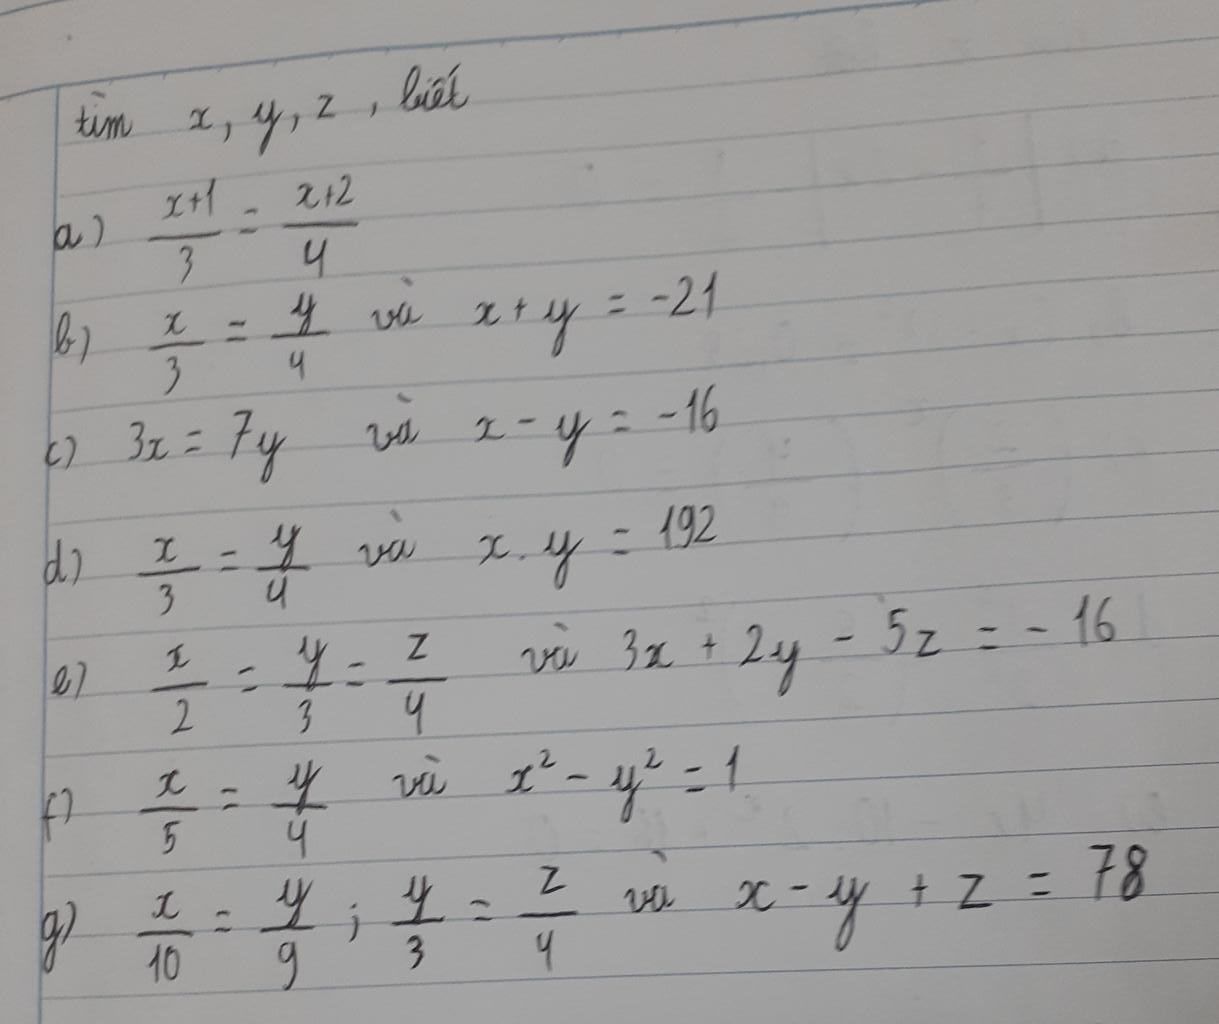 tìm x, y, z, biết
a) \frac{x+1}{3} = \frac{x+2}{4}
b) \frac{x}{3} = \frac{y}{4} và x + y = -21
c) 3x = 7y và x - y = -16
d) \frac{x}{3} = \frac{y}{4} và x . y = 192
e) \frac{x}{2} = \frac{y}{3} = \frac{z}{4} và 3x + 2y - 5z = -16
f) \frac{x}{5} = \frac{y}{4} và x² - y² = 1
g) \frac{x}{10} = \frac{y}{9} ; \frac{y}{3} = \frac{z}{4} và x - y + z = 78